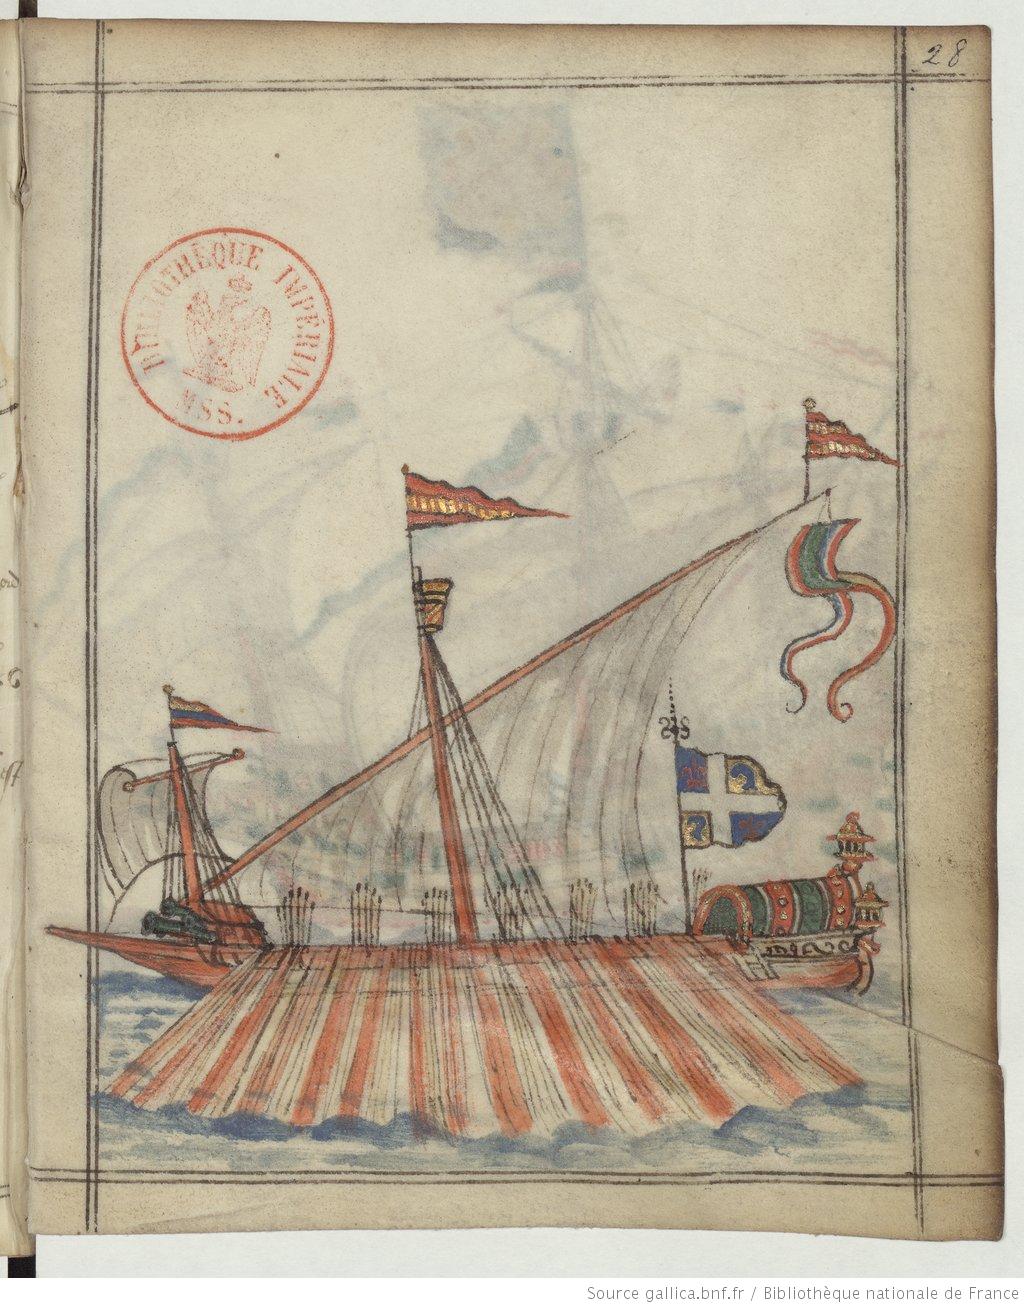 28
BIBLIOTHÈQUE IMPÉRIALE
MSS.
Source gallica.bnf.fr / Bibliothèque nationale de France